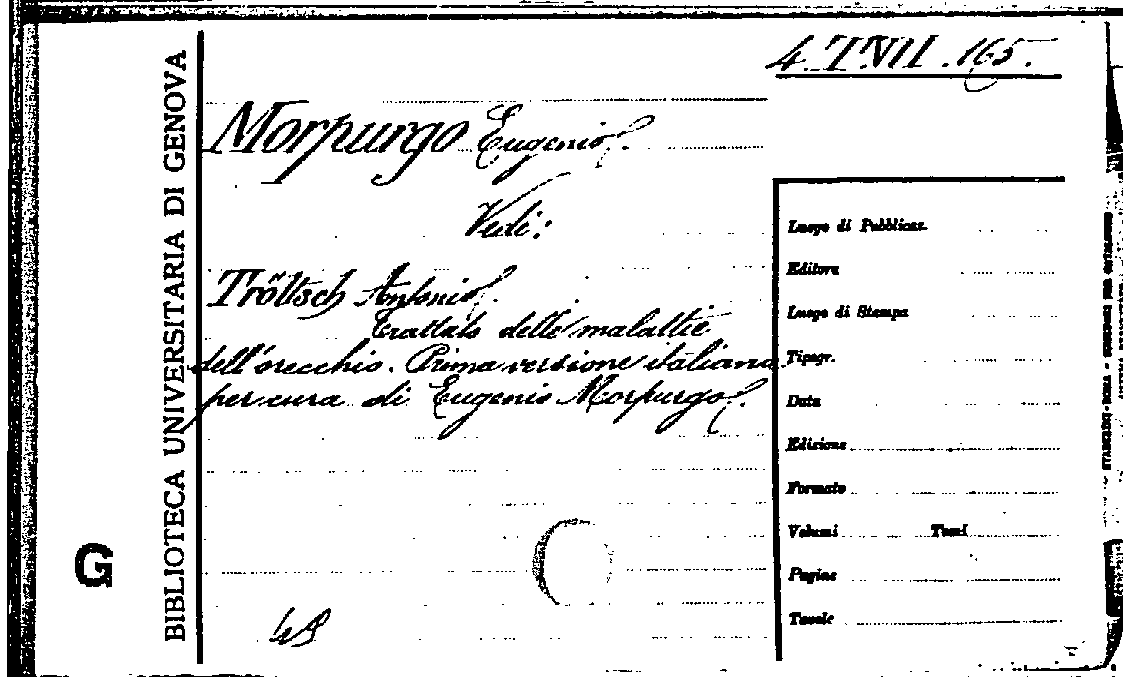 4. T.VII.165.
Morpurgo Eugenio.
Vedi:
Tröltsch Antonio.
Trattato delle malattie
dell'orecchio. Prima versione italiana
per cura di Eugenio Morpurgo.
BIBLIOTECA UNIVERSITARIA DI GENOVA
G
Luogo di Pubblicaz.
Editore
Luogo di Stampa
Tipogr.
Data
Edizione
Formato
Volumi Tomi
Pagine
Tavole